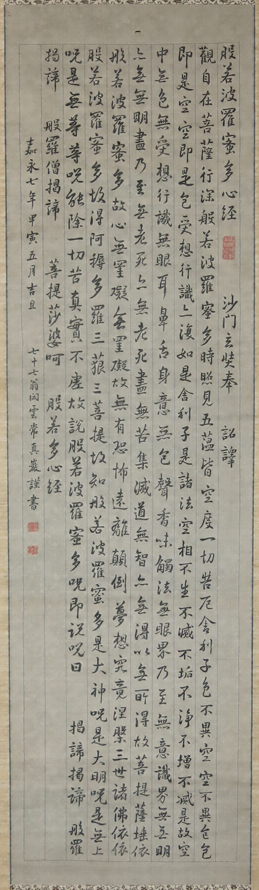 般若波羅蜜多心経 沙門玄奘奉 詔譯
觀自在菩薩行深般若波羅蜜多時照見五蘊皆空度一切苦厄舎利子色不異空空不異色色
即是空空即是色受想行識亦復如是舎利子是諸法空相不生不滅不垢不浄不増不減是故空
中無色無受想行識無眼耳鼻舌身意無色聲香味觸法無眼界乃至無意識界無無明
亦無無明盡乃至無老死亦無老死盡無苦集滅道無智亦無得以無所得故菩提薩埵依
般若波羅蜜多故心無罣礙無罣礙故無有恐怖遠離顛倒夢想究竟涅槃三世諸佛依
般若波羅蜜多故得阿耨多羅三藐三菩提故知般若波羅蜜多是大神呪是大明呪是無上
呪是無等等呪能除一切苦真實不虚故説般若波羅蜜多呪即説呪曰 揭諦揭諦 般羅
揭諦 般羅僧揭諦 菩提莎婆呵 般若多心経
嘉永七年甲寅五月吉旦 七十七翁 雲常真 謹書